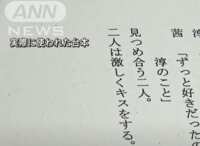 ANN
NEWS
実際に使われた台本
淳
茜 「ずっと好きだったの
淳のこと」
見つめ合う二人。
二人は激しくキスをする。